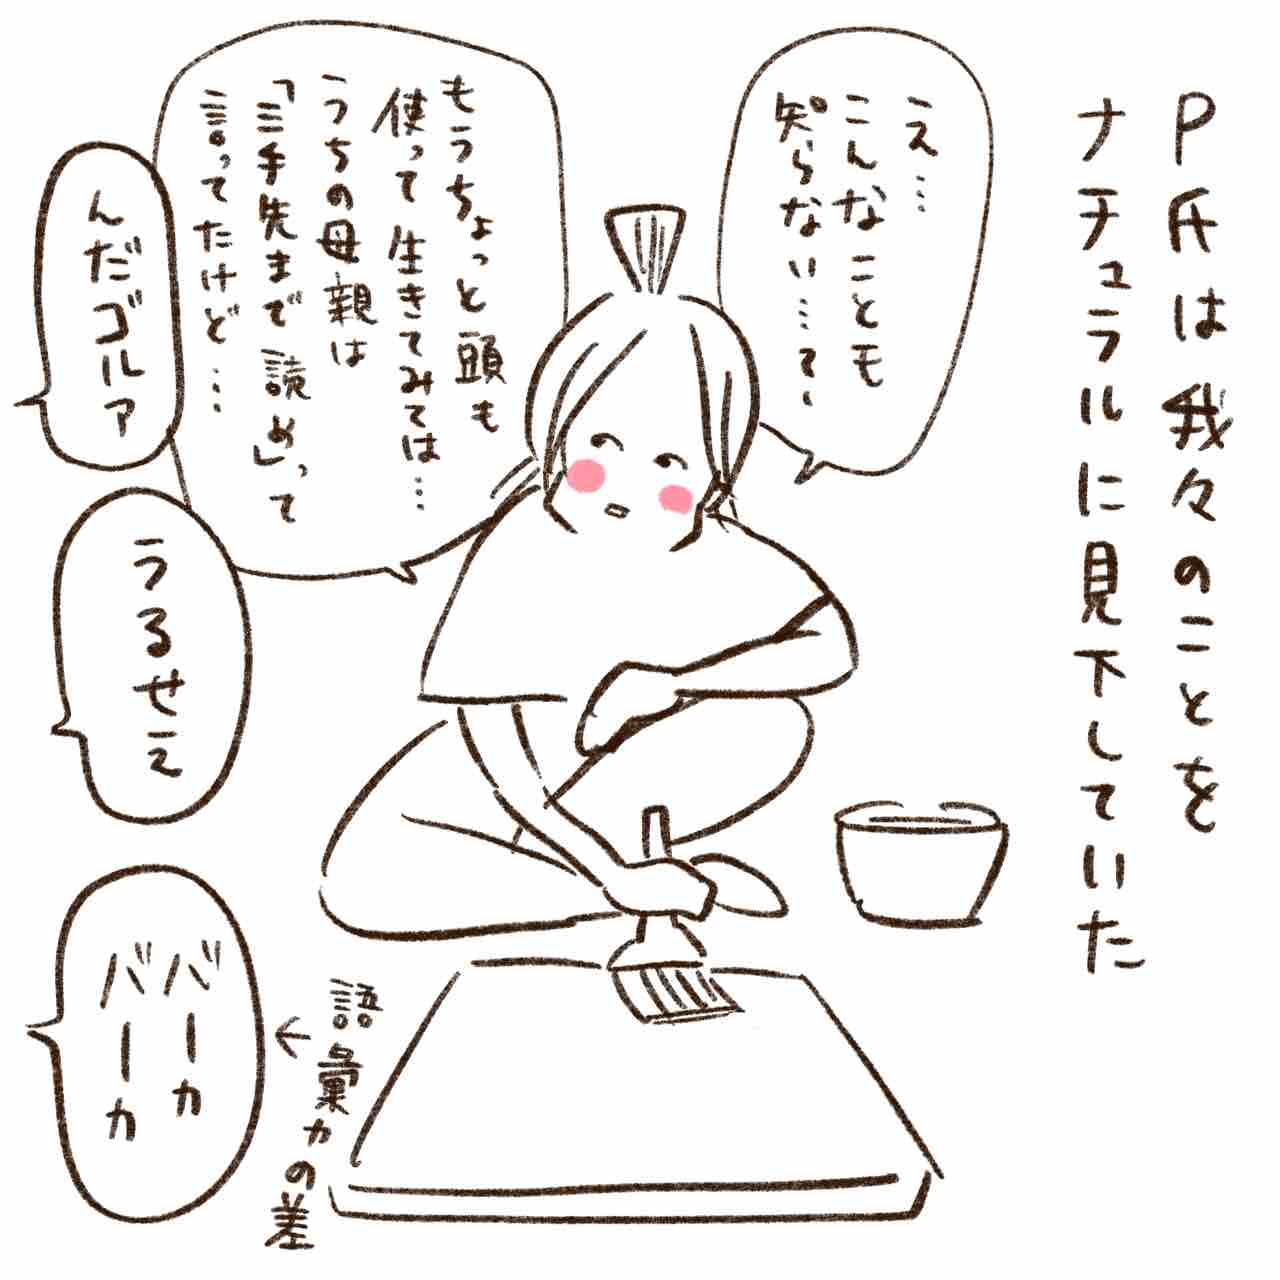 P氏は我々のことを
ナチュラルに見下していた
え…
こんなことも
知らない…て、
もうちょっと頭も
使って生きてみては…
うちの母親は
「三手先まで読め」って
言ってたけど…
んだゴルァ
うるせえ
バーカ
バーカ
←語彙力の差